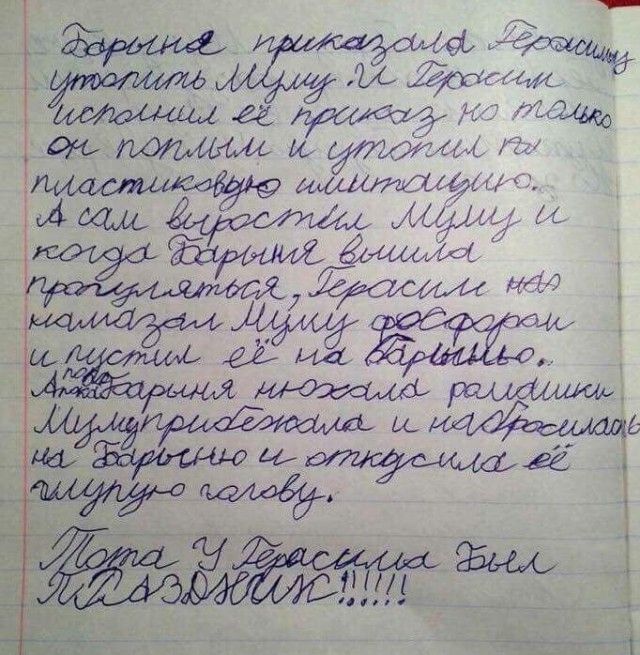 Барыня приказала Герасиму
утопить Муму. И Герасим
исполнил её приказ но только
он поплыл и утопил
пластиковую имитацию.
А сам вырастил Муму и
когда Барыня вышла
прогуляться, Герасим
намазал Муму фосфором
и пустил её на Барыню.
А пока Барыня нюхала ромашки
Муму прибежала и набросилась
на Барыню и откусила её
глупую голову.
Тота У Герасима Был
ПРАЗДНИК!!!!!!